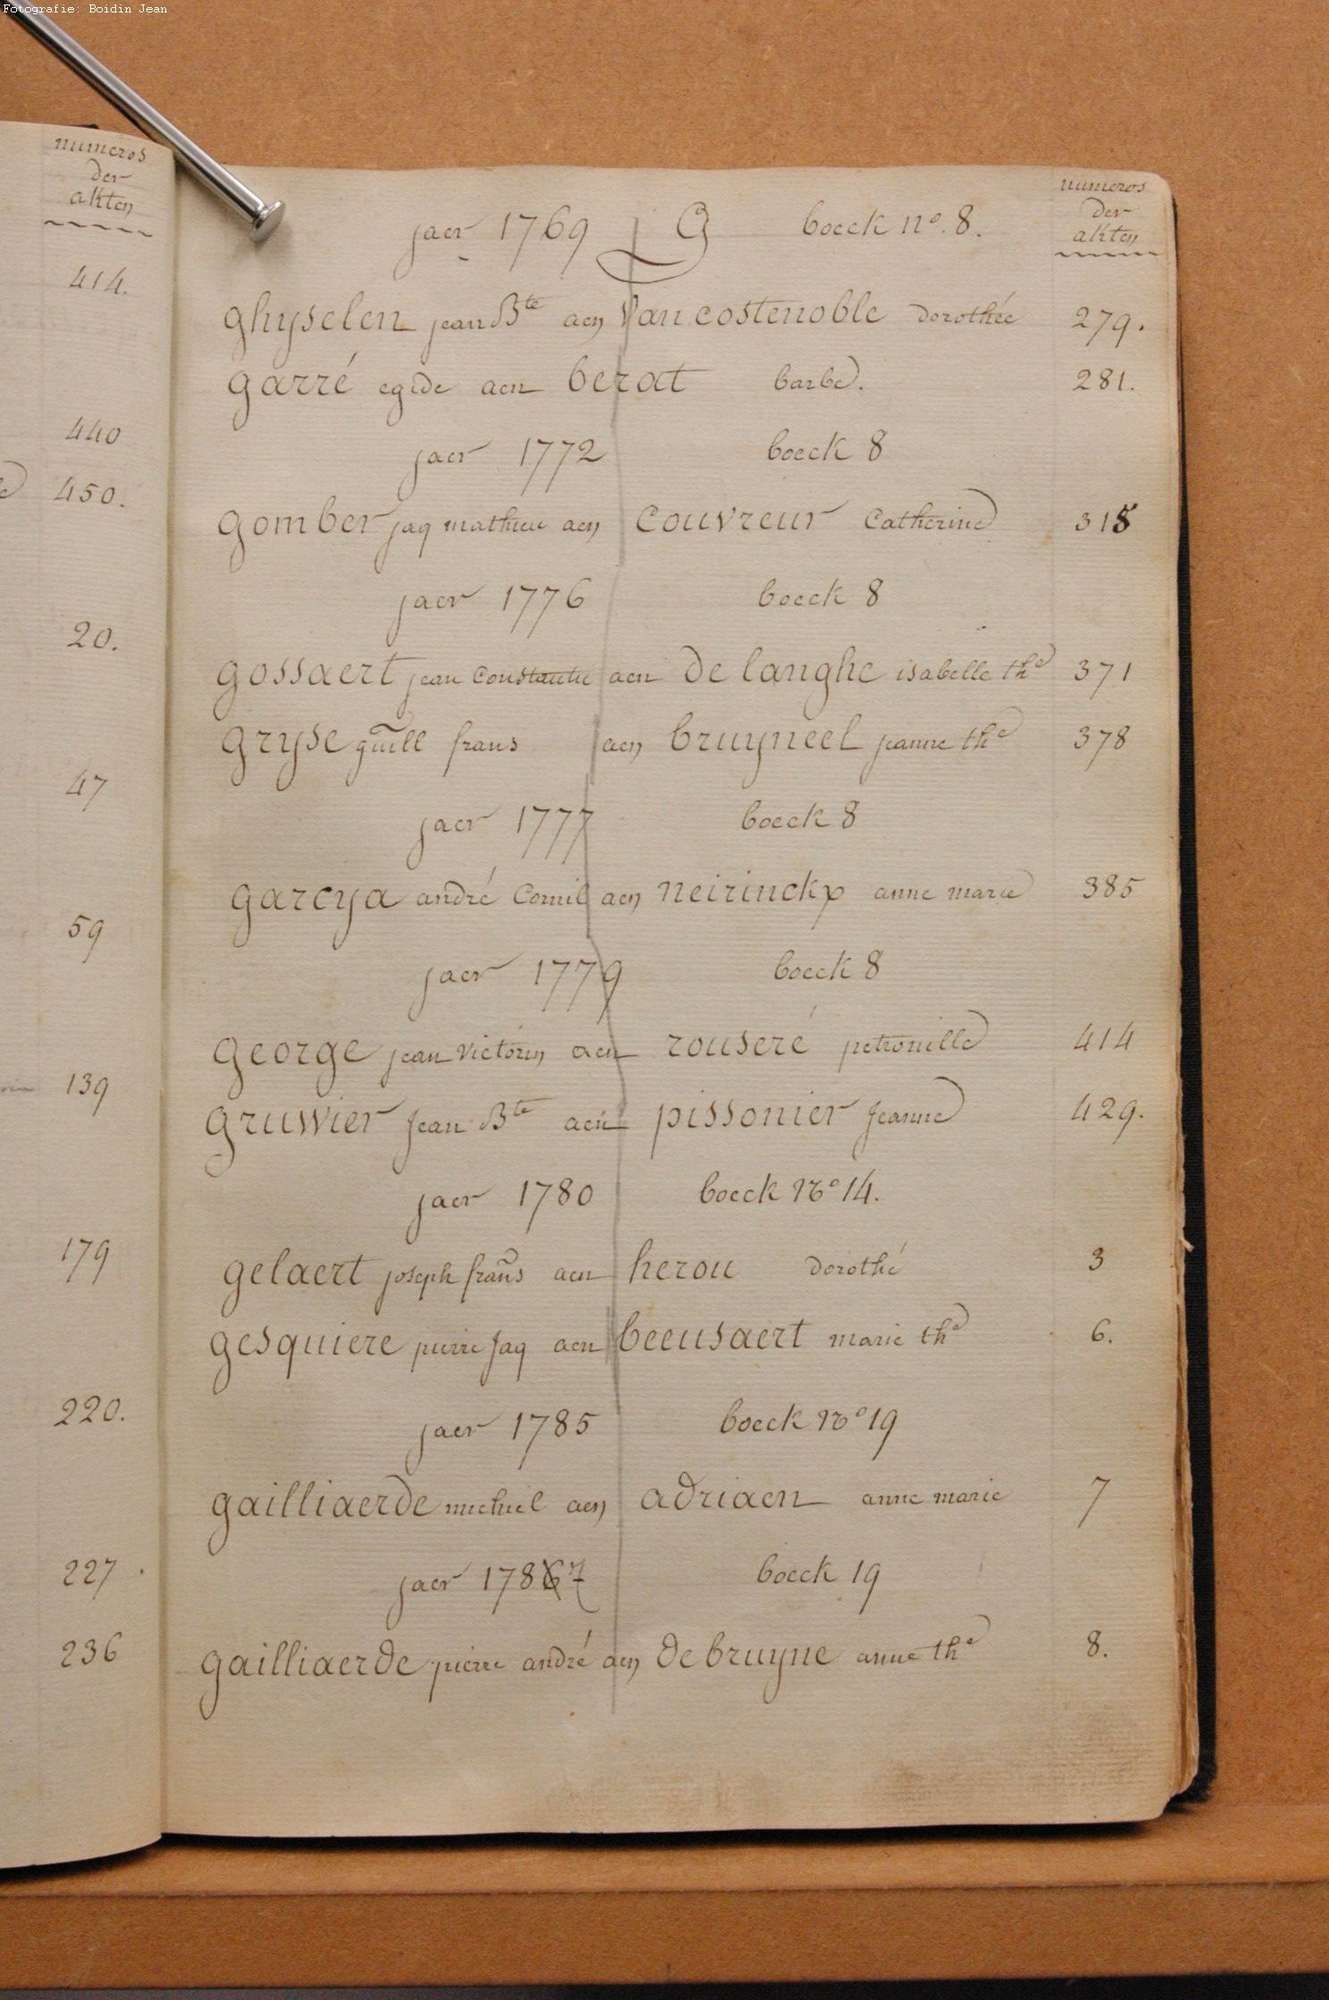 Fotografie: Boidin Jean
numeros
der
akten
414.
440
450.
20.
47
59
139
179
220.
227.
236
numeros
der
akten
jaer 1769 G boeck n°. 8.
ghyselen jean Bte aen Van costenoble dorothée 279.
garré egide aen berat barbe. 281.
jaer 1772 boeck 8
gomber jaq mathieu aen couvreur Catherine 315
jaer 1776 boeck 8
gossaert jean Constantin aen de langhe isabelle the 371
gryse guill frans aen bruyneel jeanne the 378
jaer 1777 boeck 8
garcya andré Cornil aen neirinckx anne marie 385
jaer 1779 boeck 8
george jean Victorin aen rouseré petronille 414
gruwier Jean Bte aen pissonier Jeanne 429.
jaer 1780 boeck N° 14.
gelaert joseph frans aen herou dorothé 3
gesquiere pierre Jaq aen beeusaert marie the 6.
jaer 1785 boeck N° 19
gailliaerde michiel aen adriaen anne marie 7
jaer 17867 boeck 19
gailliaerde pierre andré aen de bruyne anne the 8.